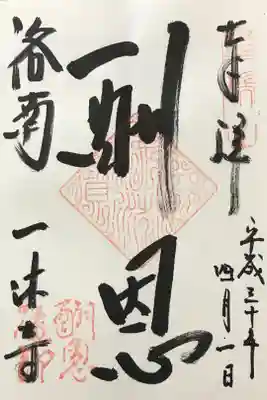 奉拝
平成三十年
四月一日
酬恩
洛南
一休寺